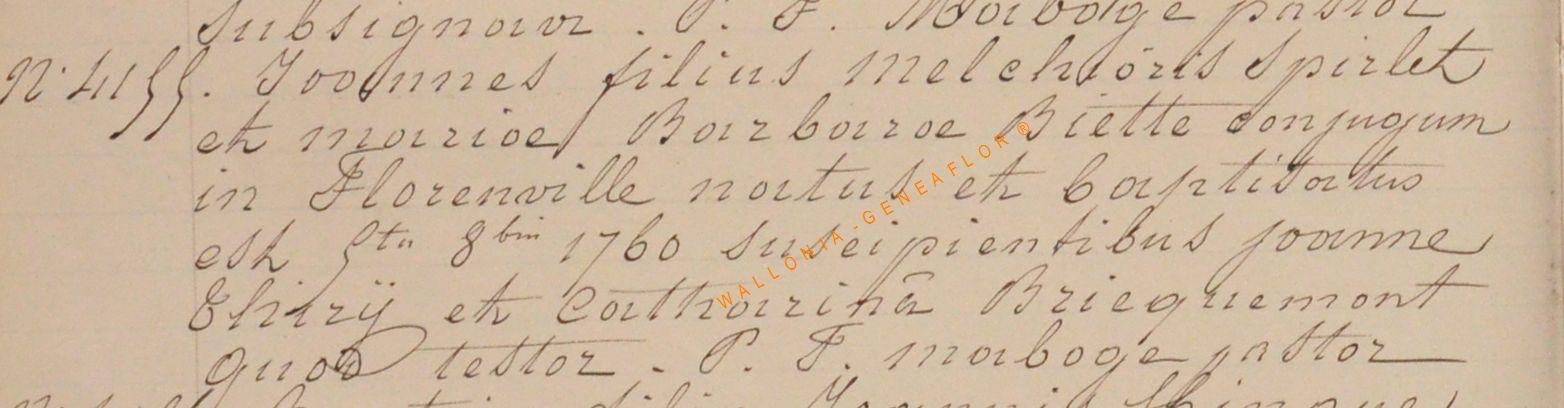 subsignavi. P. F. Maboge pastor
N. 4155. Joannes filius Melchioris Spirlet
et mariae Barbarae Biette conjugum
in Florenville natus et baptisatus
est 5ta 8bris 1760 suscipientibus joanne
Thiry et Catharinâ Briequemont
quod testor. P. F. maboge pastor
WALLONIA-GENEAFLOR ®